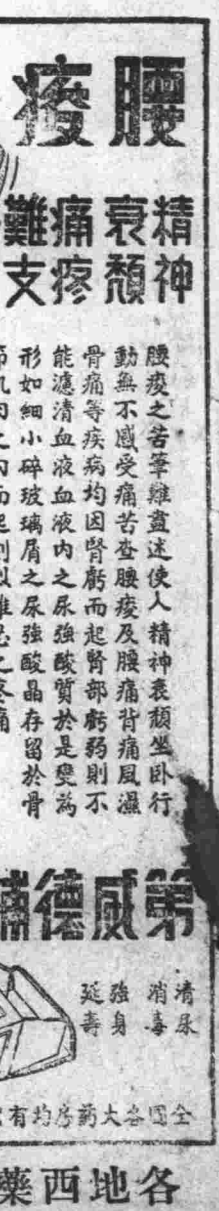 腰痠
精神
衰頹
痛疼
難支
腰痠之苦筆難盡述使人精神衰頹坐卧行
動無不感受痛苦查腰痠及腰痛背痛風濕
骨痛等疾病均因腎虧而起腎部虧弱則不
能濾清血液血液內之尿強酸質於是變為
形如細小碎玻璃屑之尿強酸晶存留於骨
第威德補
清尿
消毒
強身
延壽
全國各大藥房均有
各地西藥